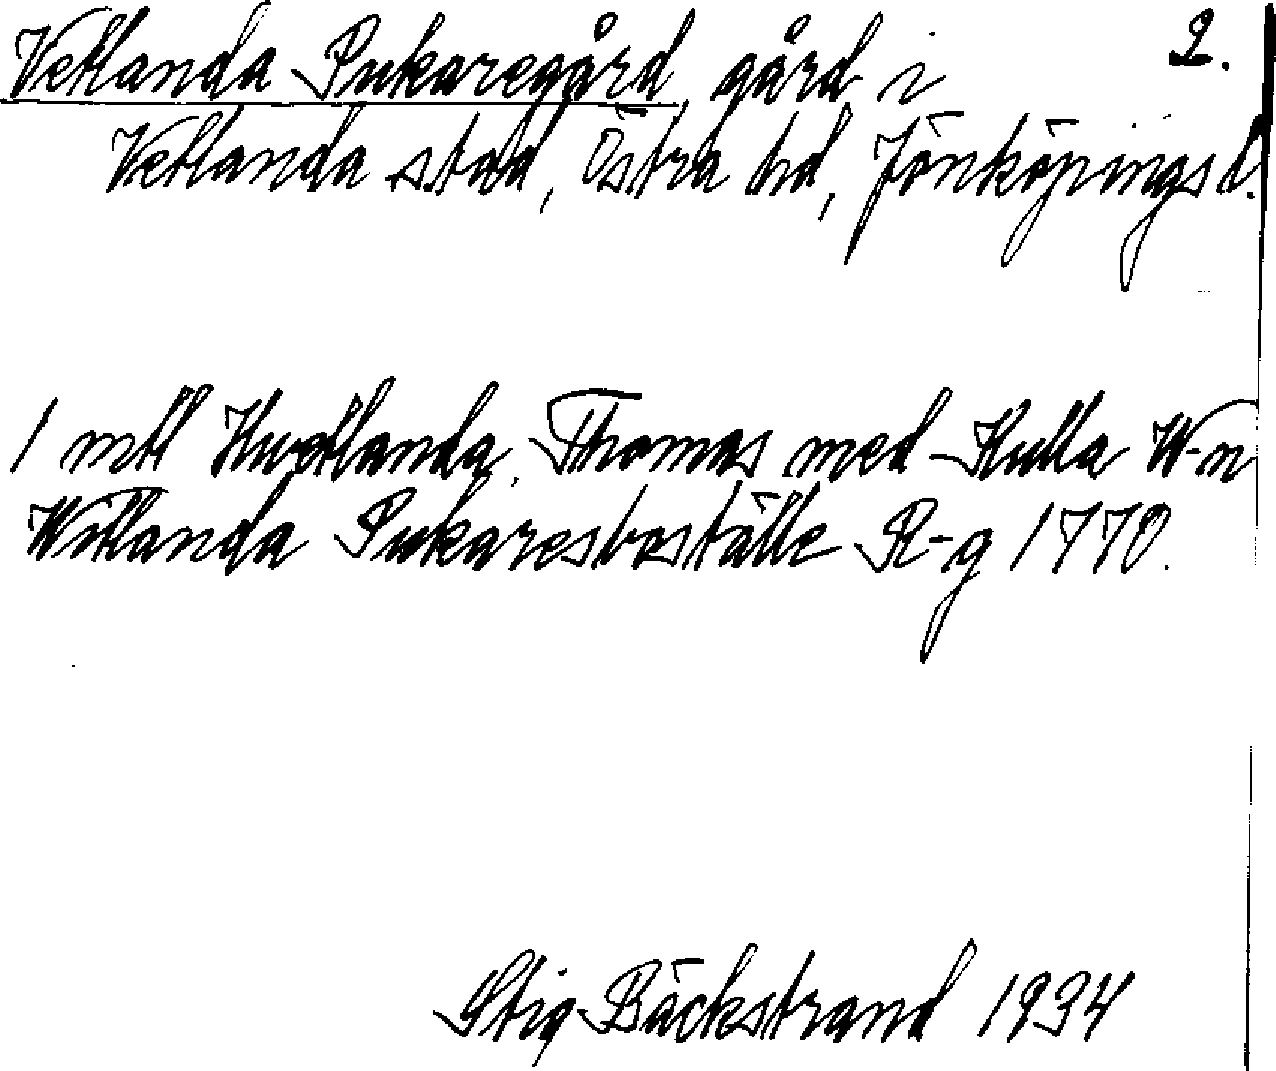 Vetlanda Pukaregård, gård i 2.
Vetlanda stad, Östra hd, Jönköpings l.
1 mtl Hvetlanda, Thomas med Kulla W-n
Witlanda Pukaresboställe R-g 1770.
Stig Bäckstrand 1934